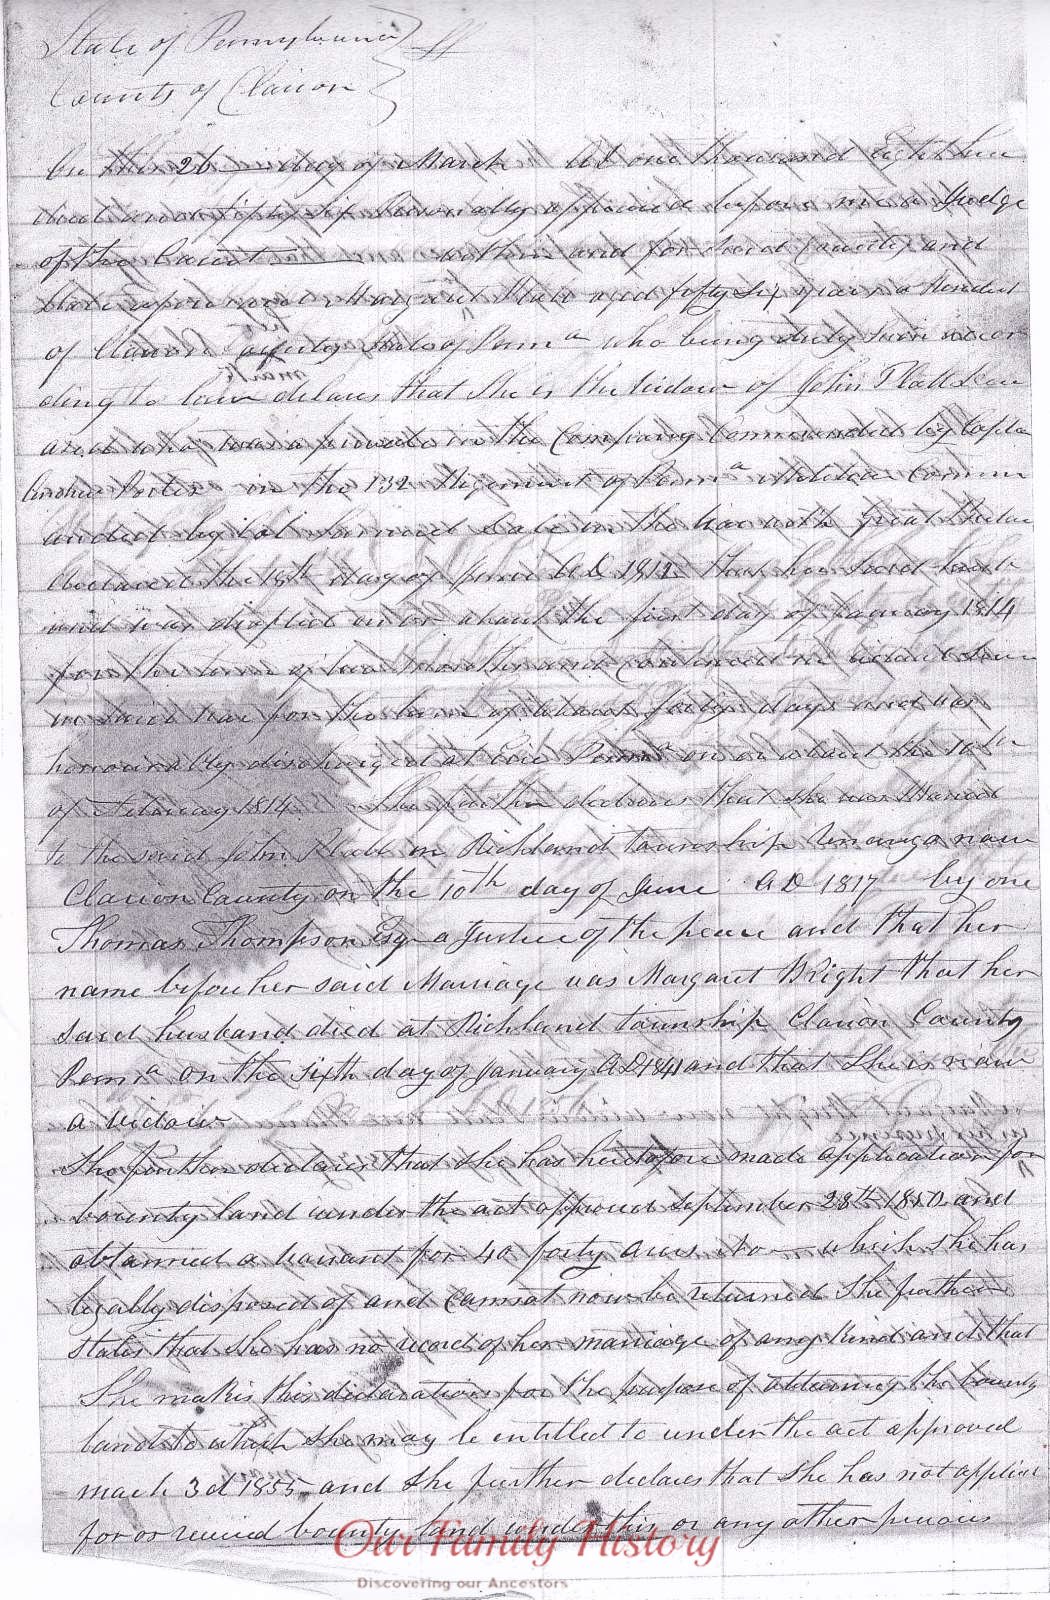 State of Pennsylvania } ss
County of Clarion }
On this 26 day of March AD one thousand Eight hun
dred and fifty six Personally appeared before me a Judge
of the Court within and for said County and
State aforesaid Margaret Platt aged fifty six years a Resident
of Clarion County State of Penna who being duly sworn accor
ding to law delares that she is the widow of John Platt Dece
ased who was a private in the Company Commanded by Capta
in the 132 Regiment of Penna Militia Comm
anded by Col in the war with Great Britain
declared the 18th day of June AD 1812 that her said husb
and was drafted on or about the first day of January 1814
for the term of two months and continued in actual Serv
in said war for the term of forty days and was
honourably discharged at Erie Penna on or about the 10th
of February 1814 She further declares that she was Maried
to the said John Platt in Richland township Venango now
Clarion County on the 10th day of June AD 1817 by one
Thomas Thompson Esq a Justice of the peace and that her
name before her said Marriage was Margaret Bright that her
said husband died at Richland township Clarion County
Penna on the sixth day of January AD 1841 and that She is now
a widow
She further declares that she has heretofore made application for
bounty land under the act approved September 28th 1850 and
obtained a warrant for 40 forty acres No — which she has
legally disposed of and cannot now be returned She further
states that she has no record of her marriage of any kind and that
She makes this declaration for the purpose of obtaining the bounty
land to which she may be entitled to under the act approved
march 3d 1855 and she further declares that she has not applied
for or received bounty land under this or any other
Our Family History
Discovering our Ancestors